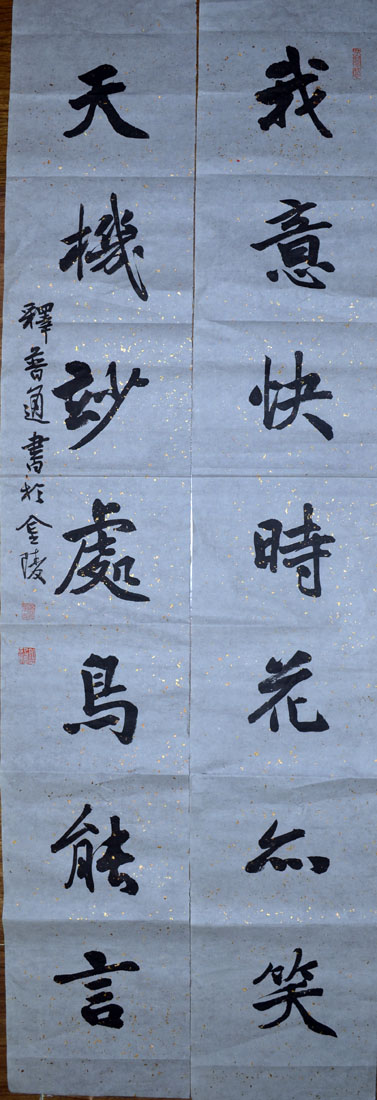 我意快時花亦笑
天機玅處鳥能言
釋普通書於金陵